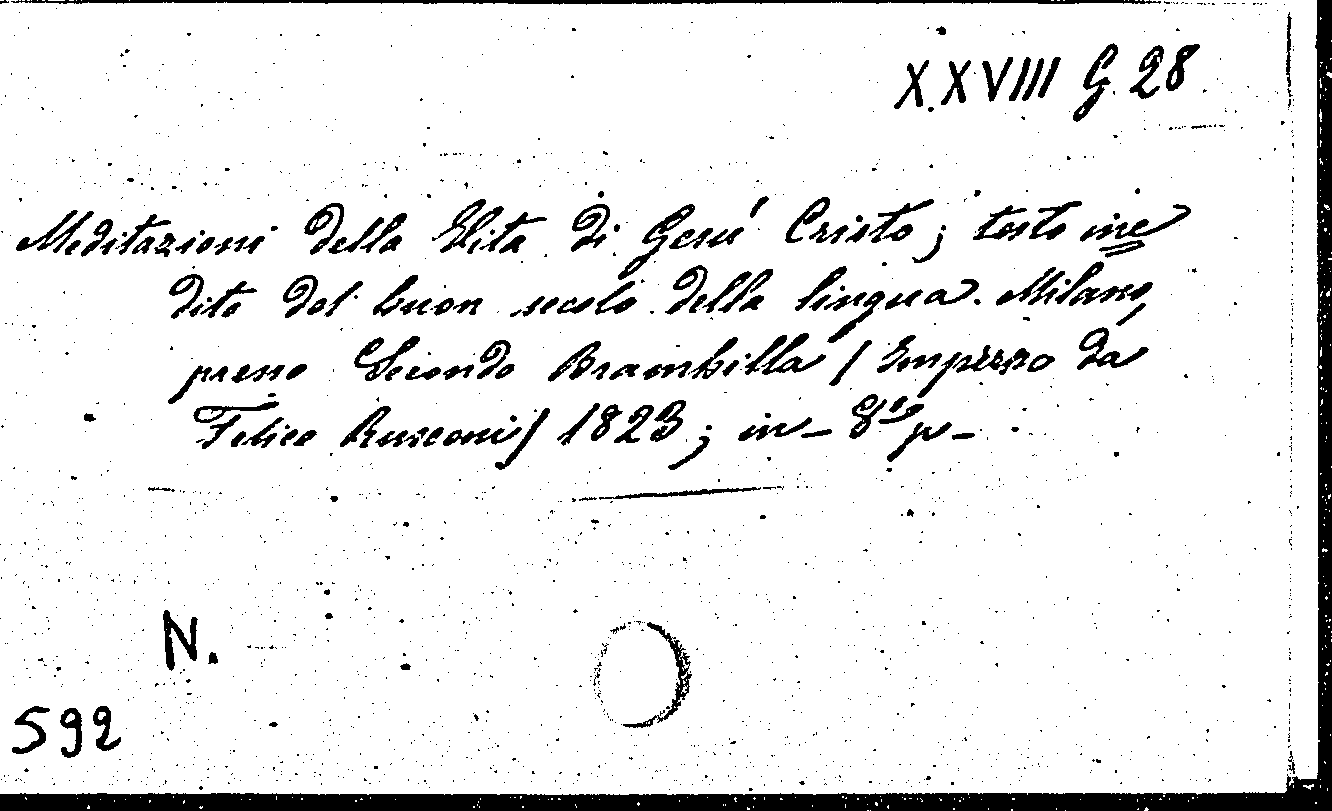 XXVIII G. 28
Meditazioni della Vita di Gesù Cristo; testo ine=
dito del buon secolo della lingua. Milano,
presso Secondo Brambilla (Impresso da
Felice Rusconi) 1823; in-8º p-
N.
592